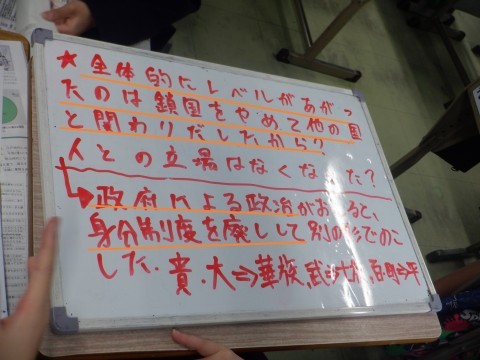 ★全体的にレベルがあがっ
たのは鎖国をやめて他の国
と関わりだしたから?
人との立場はなくなった?
→政府による政治がおきると、
身分制度を廃して別の形でのこ
した.貴.大⇒華族,武⇒士族,百町⇒平